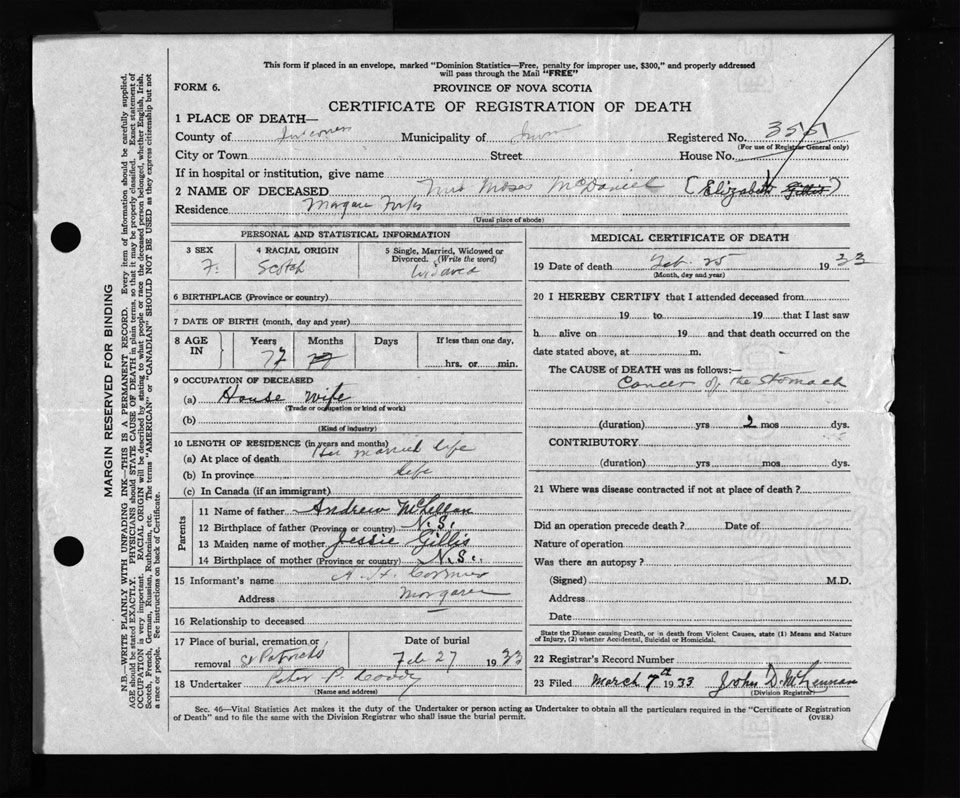 This form if placed in an envelope, marked "Dominion Statistics—Free, penalty for improper use, $300," and properly addressed
will pass through the Mail "FREE"
FORM 6.
PROVINCE OF NOVA SCOTIA
CERTIFICATE OF REGISTRATION OF DEATH
1 PLACE OF DEATH—
County of Inverness Municipality of Registered No. 3551
(For use of Registrar General only)
City or Town Street House No.
If in hospital or institution, give name
2 NAME OF DECEASED Mrs Moses McDaniel (Elizabeth Gillis)
Residence Margaree Forks
(Usual place of abode)
PERSONAL AND STATISTICAL INFORMATION
3 SEX 4 RACIAL ORIGIN 5 Single, Married, Widowed or
Divorced. (Write the word)
F. Scotch
6 BIRTHPLACE (Province or country)
7 DATE OF BIRTH (month, day and year)
8 AGE IN Years Months Days If less than one day,
72 hrs. or min.
9 OCCUPATION OF DECEASED
(a) House Wife
(Trade or occupation or kind of work)
(b)
(Kind of industry)
10 LENGTH OF RESIDENCE (in years and months)
(a) At place of death Her married life
(b) In province life
(c) In Canada (if an immigrant)
Parents
11 Name of father Andrew McLellan
12 Birthplace of father (Province or country) N.S.
13 Maiden name of mother Jessie Gillis
14 Birthplace of mother (Province or country) N.S.
15 Informant's name A. H. Cormier
Address Margaree
16 Relationship to deceased
17 Place of burial, cremation or Date of burial
removal St Patricks Feb 27 1933
18 Undertaker Peter P.
(Name and address)
MEDICAL CERTIFICATE OF DEATH
19 Date of death Feb. 25 1933
(Month, day and year)
20 I HEREBY CERTIFY that I attended deceased from
19 to 19 that I last saw
h alive on 19 and that death occurred on the
date stated above, at m.
The CAUSE of DEATH was as follows:—
Cancer of the Stomach
(duration) yrs 2 mos dys.
CONTRIBUTORY
(duration) yrs mos dys.
21 Where was disease contracted if not at place of death?
Did an operation precede death? Date of
Nature of operation
Was there an autopsy?
(Signed) M.D.
Address
Date
State the Disease causing Death, or in death from Violent Causes, state (1) Means and Nature
of Injury, (2) whether Accidental, Suicidal or Homicidal.
22 Registrar's Record Number
23 Filed March 7th 1933 John D. McLennan
(Division Registrar)
Sec. 46—Vital Statistics Act makes it the duty of the Undertaker or person acting as Undertaker to obtain all the particulars required in the "Certificate of Registration
of Death" and to file the same with the Division Registrar who shall issue the burial permit.
(OVER)
MARGIN RESERVED FOR BINDING
N.B.—WRITE PLAINLY WITH UNFADING INK—THIS IS A PERMANENT RECORD. Every item of information should be carefully supplied.
AGE should be stated EXACTLY. PHYSICIANS should STATE CAUSE OF DEATH in plain terms, so that it may be properly classified. Exact statement of
OCCUPATION is very important. RACIAL ORIGIN will be described by stating to what people or race the deceased person belonged, whether English, Irish,
Scotch, French, German, Russian, Ruthenian, etc. The terms "AMERICAN" or "CANADIAN" SHOULD NOT BE USED as they express citizenship but not
a race or people. See instructions on back of Certificate.